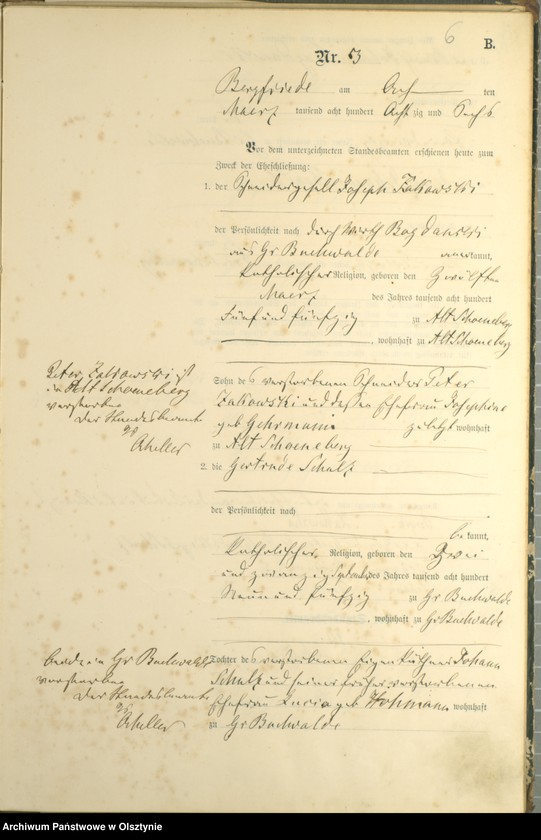 6
B.
Nr. 3
Bergfriede am Acht ten
Maerz tausend acht hundert Acht zig und Sechs
Vor dem unterzeichneten Standesbeamten erschienen heute zum
Zweck der Eheschließung:
1. der Schneidergesell Joseph Zakowski
der Persönlichkeit nach durch Wirth Bogdanski
aus Gr Buchwalde anerkannt,
katholischer Religion, geboren den Zwölften
Maerz des Jahres tausend acht hundert
Fünf und fünfzig zu Alt Schoeneberg
, wohnhaft zu Alt Schoeneberg
Peter Zakowski ist
in Alt Schoneberg
verstorben
Der Standesbeamte
Sohn des verstorbenen Schneider Peter
Zakowski und dessen Ehefrau Josephine
geb Gehrmann zuletzt wohnhaft
zu Alt Schoeneberg
2. die Gertrude Schulz
der Persönlichkeit nach
bekannt,
katholischer Religion, geboren den Zwei
und zwanzig des Jahres tausend acht hundert
Neun und fünfzig zu Gr Buchwalde
, wohnhaft zu Gr Buchwalde
beide in Gr Buchwalde
verstorben
Der Standesbeamte
Tochter des verstorbenen Eigenkäthner Johann
Schulz und seiner früher verstorbenen
Ehefrau Lucia geb Hohmann wohnhaft
zu Gr Buchwalde
Archiwum Państwowe w Olsztynie